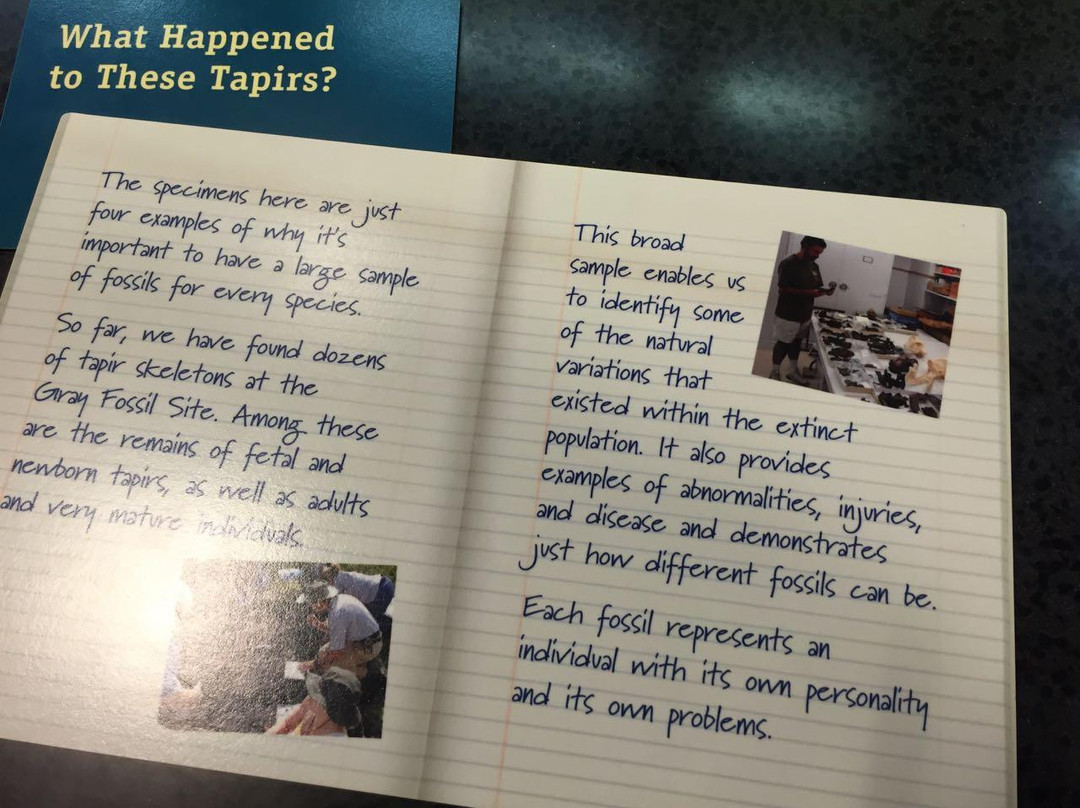 What Happened
to These Tapirs?
The specimens here are just
four examples of why it's
important to have a large sample
of fossils for every species.
So far, we have found dozens
of tapir skeletons at the
Gray Fossil Site. Among these
are the remains of fetal and
newborn tapirs, as well as adults
and very mature individuals.
This broad
sample enables us
to identify some
of the natural
variations that
existed within the extinct
population. It also provides
examples of abnormalities, injuries,
and disease and demonstrates
just how different fossils can be.
Each fossil represents an
individual with its own personality
and its own problems.